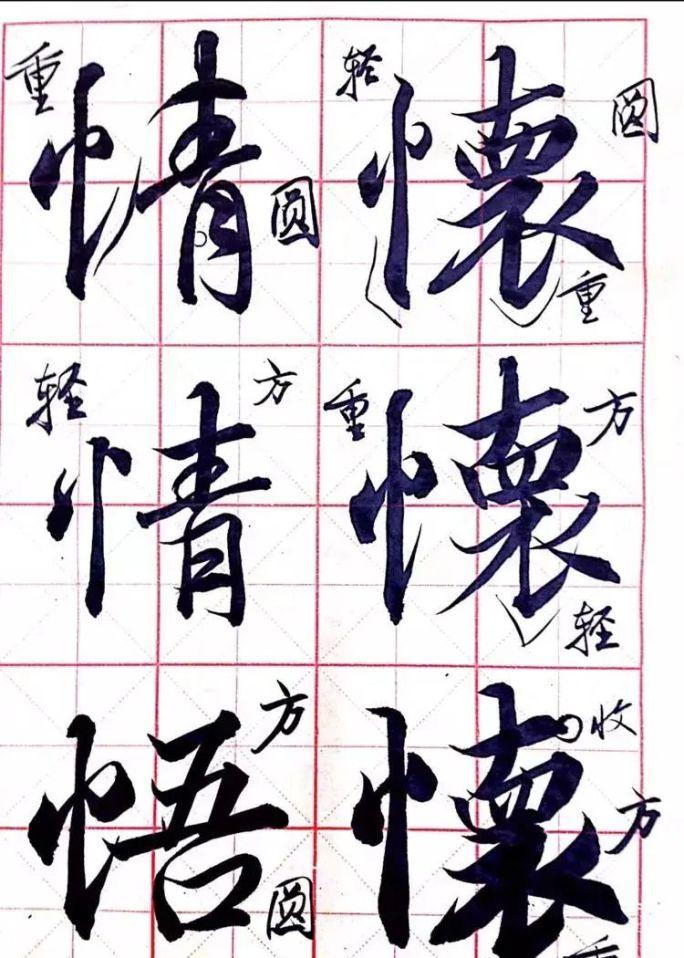 重 情 圆
轻 懷 圆 重
轻 情 方
重 懷 方 轻
悟 方 圆
懷 收 方